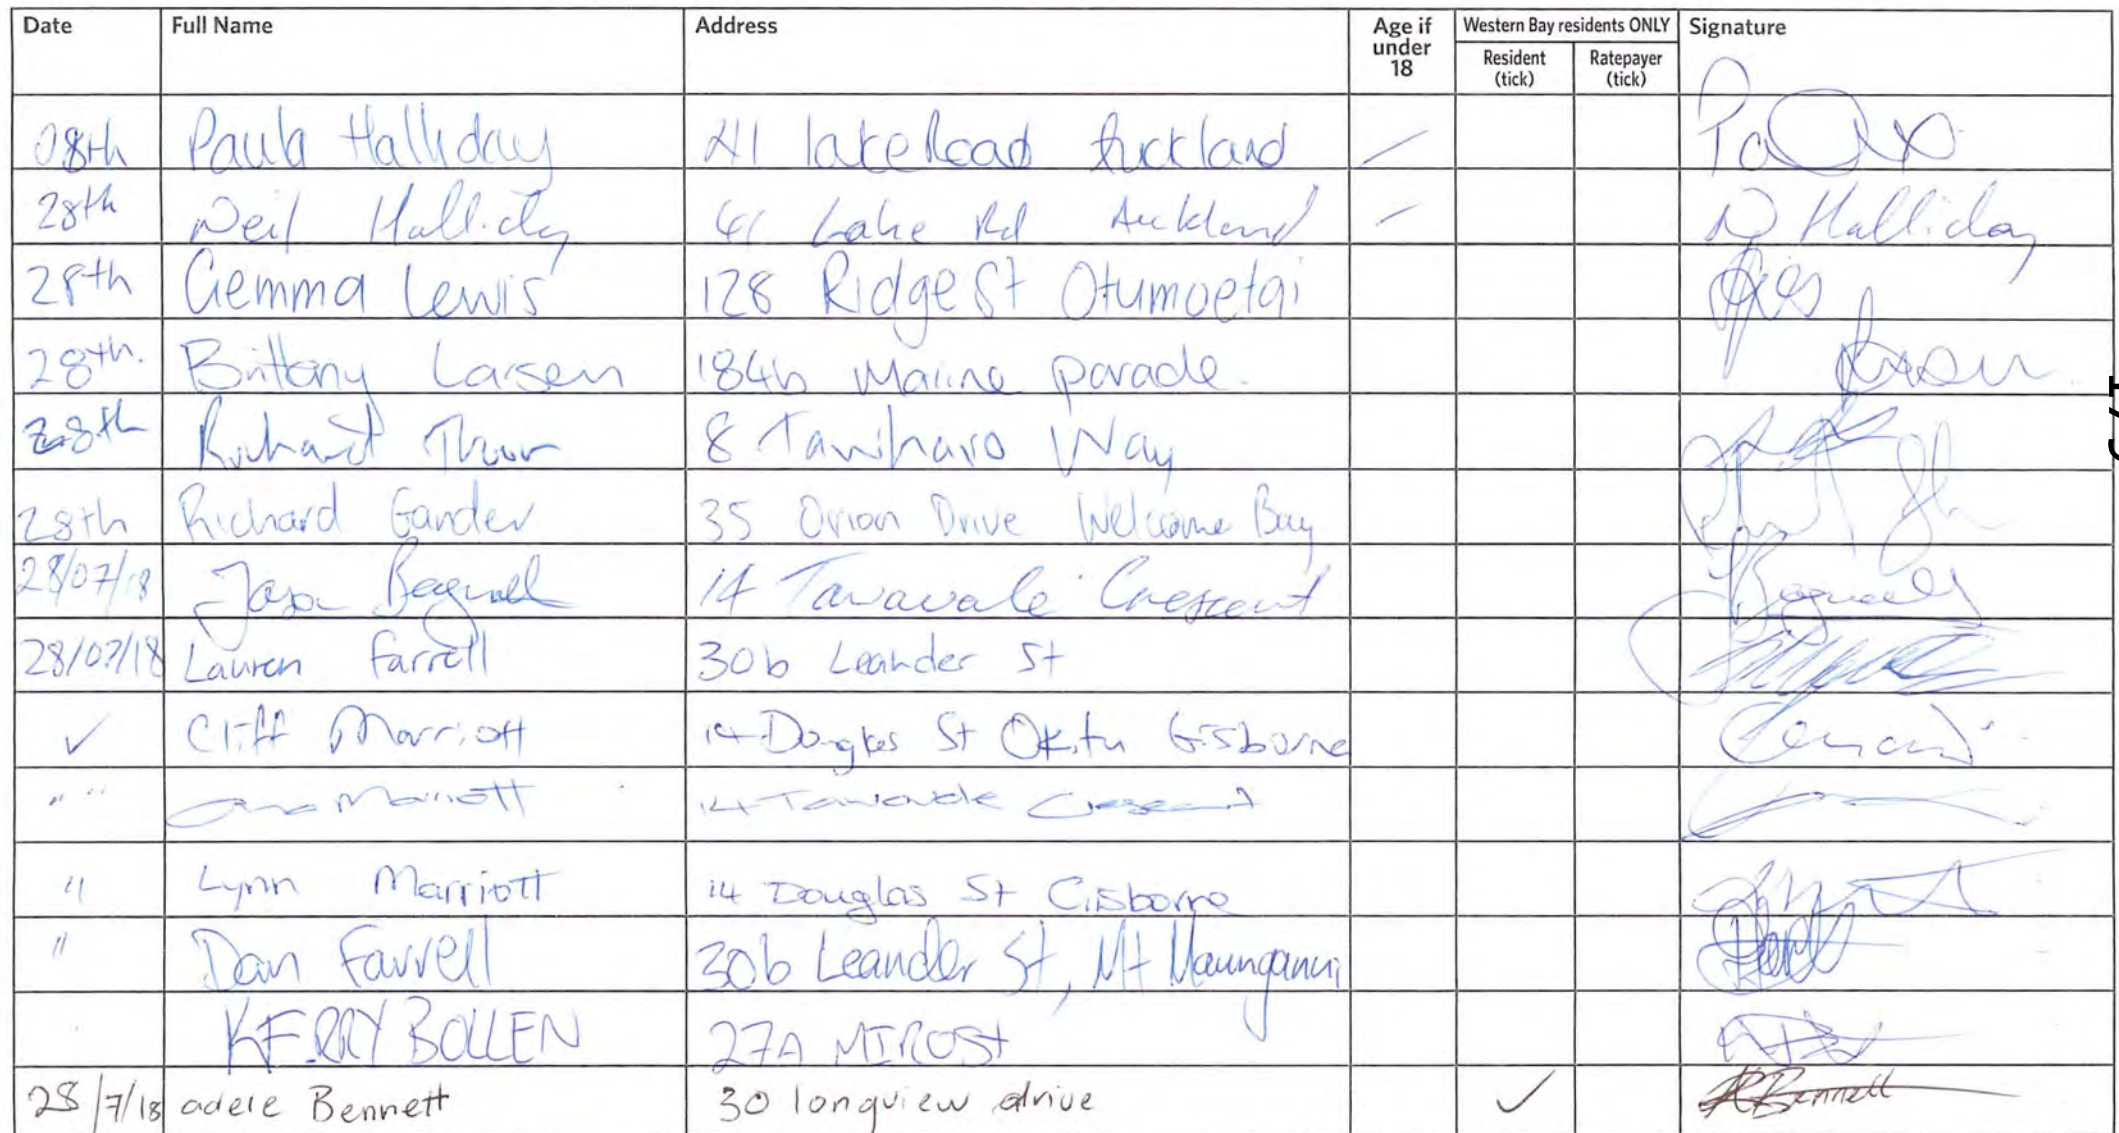 Date Full Name Address Age if under 18 Western Bay residents ONLY Resident (tick) Ratepayer (tick) Signature
28th Paula Halliday 41 lake Road Auckland
28th Neil Halliday 41 Lake Rd Auckland N Halliday
28th Gemma Lewis 128 Ridge St Otumoetai
28th. Brittany Larsen 184b Marine parade.
28th Richard 8 Taniharo Way
28th Richard Gander 35 Orion Drive Welcome Bay
28/07/18 Jason Bagnall 14 Tawavale Crescent Bagnall
28/07/18 Lauren Farrell 30b Leander St
✓ Cliff Marriott 14 Douglas St Okitu Gisborne
" " Marriott 14 Tawavale Crescent
" Lynn Marriott 14 Douglas St Gisborne
" Dan Farrell 30b Leander St, Mt Maunganui
KERRY BOLLEN 27A MIRO St
28/7/18 adele Bennett 30 longview drive ✓ ABennett